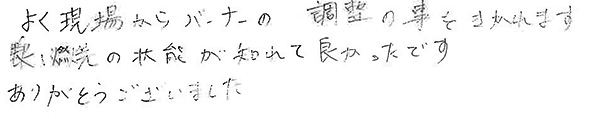 よく現場からバーナーの 調整の事をきかれます
燃焼の状態が知れて良かったです
ありがとうございました